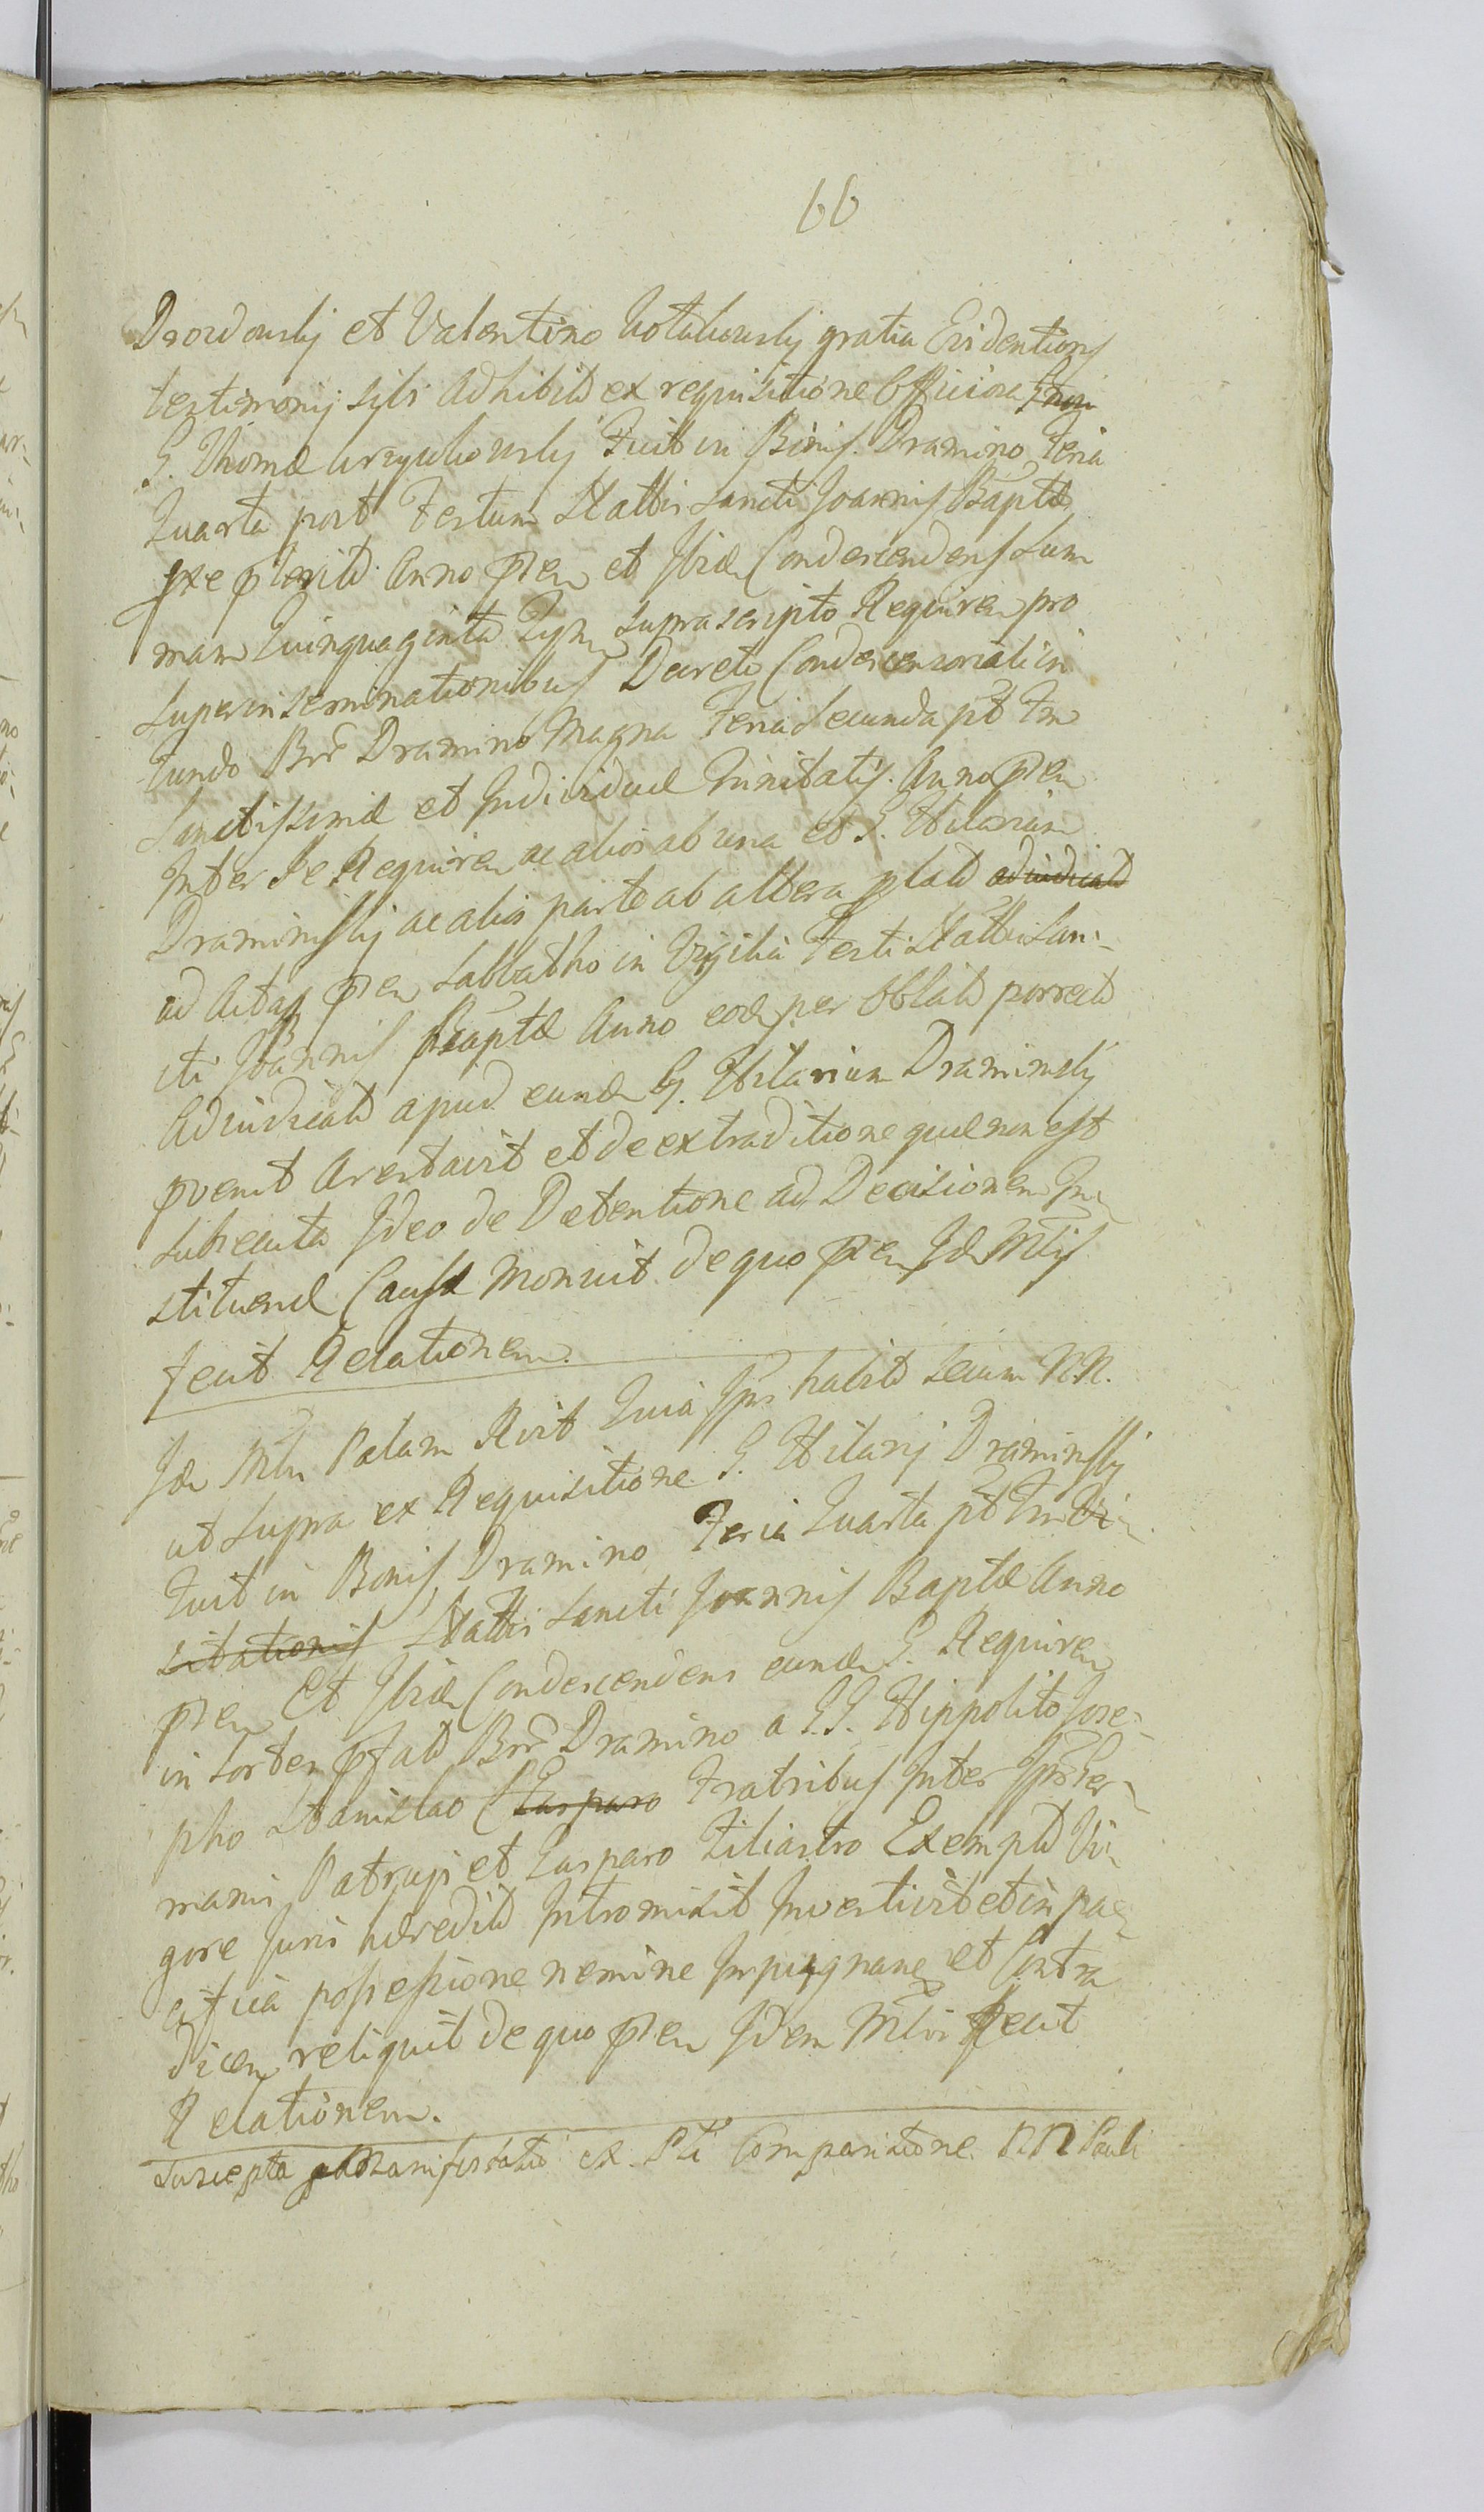 66
Drozdowskj et Valentino Kotukowskj gratia Evidentions
testimonij sibi adhibitd ex requisitione Officiosa
G. Thomæ Krzyukowskj Fuit in Bonis Dramino Feria
Quarta post Festum Nattis Sancti Joannis Baptæ
præterito Anno pten et Ibid Condescendens Sum
mam Quinquaginta Tym Suprascripto Requiren pro
Superinseminationibus Decreto Condescensoriali in
Fundo Bor Dramino Magna Feria Secunda pt Fm
Sanctissimæ et Individuæ Trinitatis Anno pten
Inter Se Requiren ac alios ab una et G. Hilarium
Draminskj ac alios parte ab altera platd adiudicatd
ad Acta pten Sabbatho in Vigilia Festi Nattis San-
cti Joannis Baptæ Anno eod per Oblatd porrectd
Adiudicatd apud eund G. Hilarium Draminskj
pvenit Arestavit et de extraditione quæ non est
Subsecuta Ideo de Detentione ad Decisionem In
stituend Causæ Monuit de quo pten Id Mlis
fecit Relationem.
Id Mlis Palam Rvit Quia Ips habitd Secum NN.
ut Supra ex Requisitione G. Hilarij Draminskj
Fuit in Bonis Dramino Feria Quarta pt Fm Vi
sitationis Nattis Sancti Joannis Baptæ Anno
pten Et Ibid Condescendens eund G. Requiren
in Sortem pfatd Bor Dramino a GG. Hippolito Jose-
pho Stanislao Gasparo Fratribus Inter Ips Ger
manis Patruis et Gasparo Filiastro Exemptd Vi
gore Juris hæreditd Intromisit Investivit et in pa
cifica possessione nemine Impugnane et Contra
dicen reliquit de quo pten Idem Mlis fecit
Relationem.
Suscepta Manifestatio ex Pti Comparitione NN Pauli